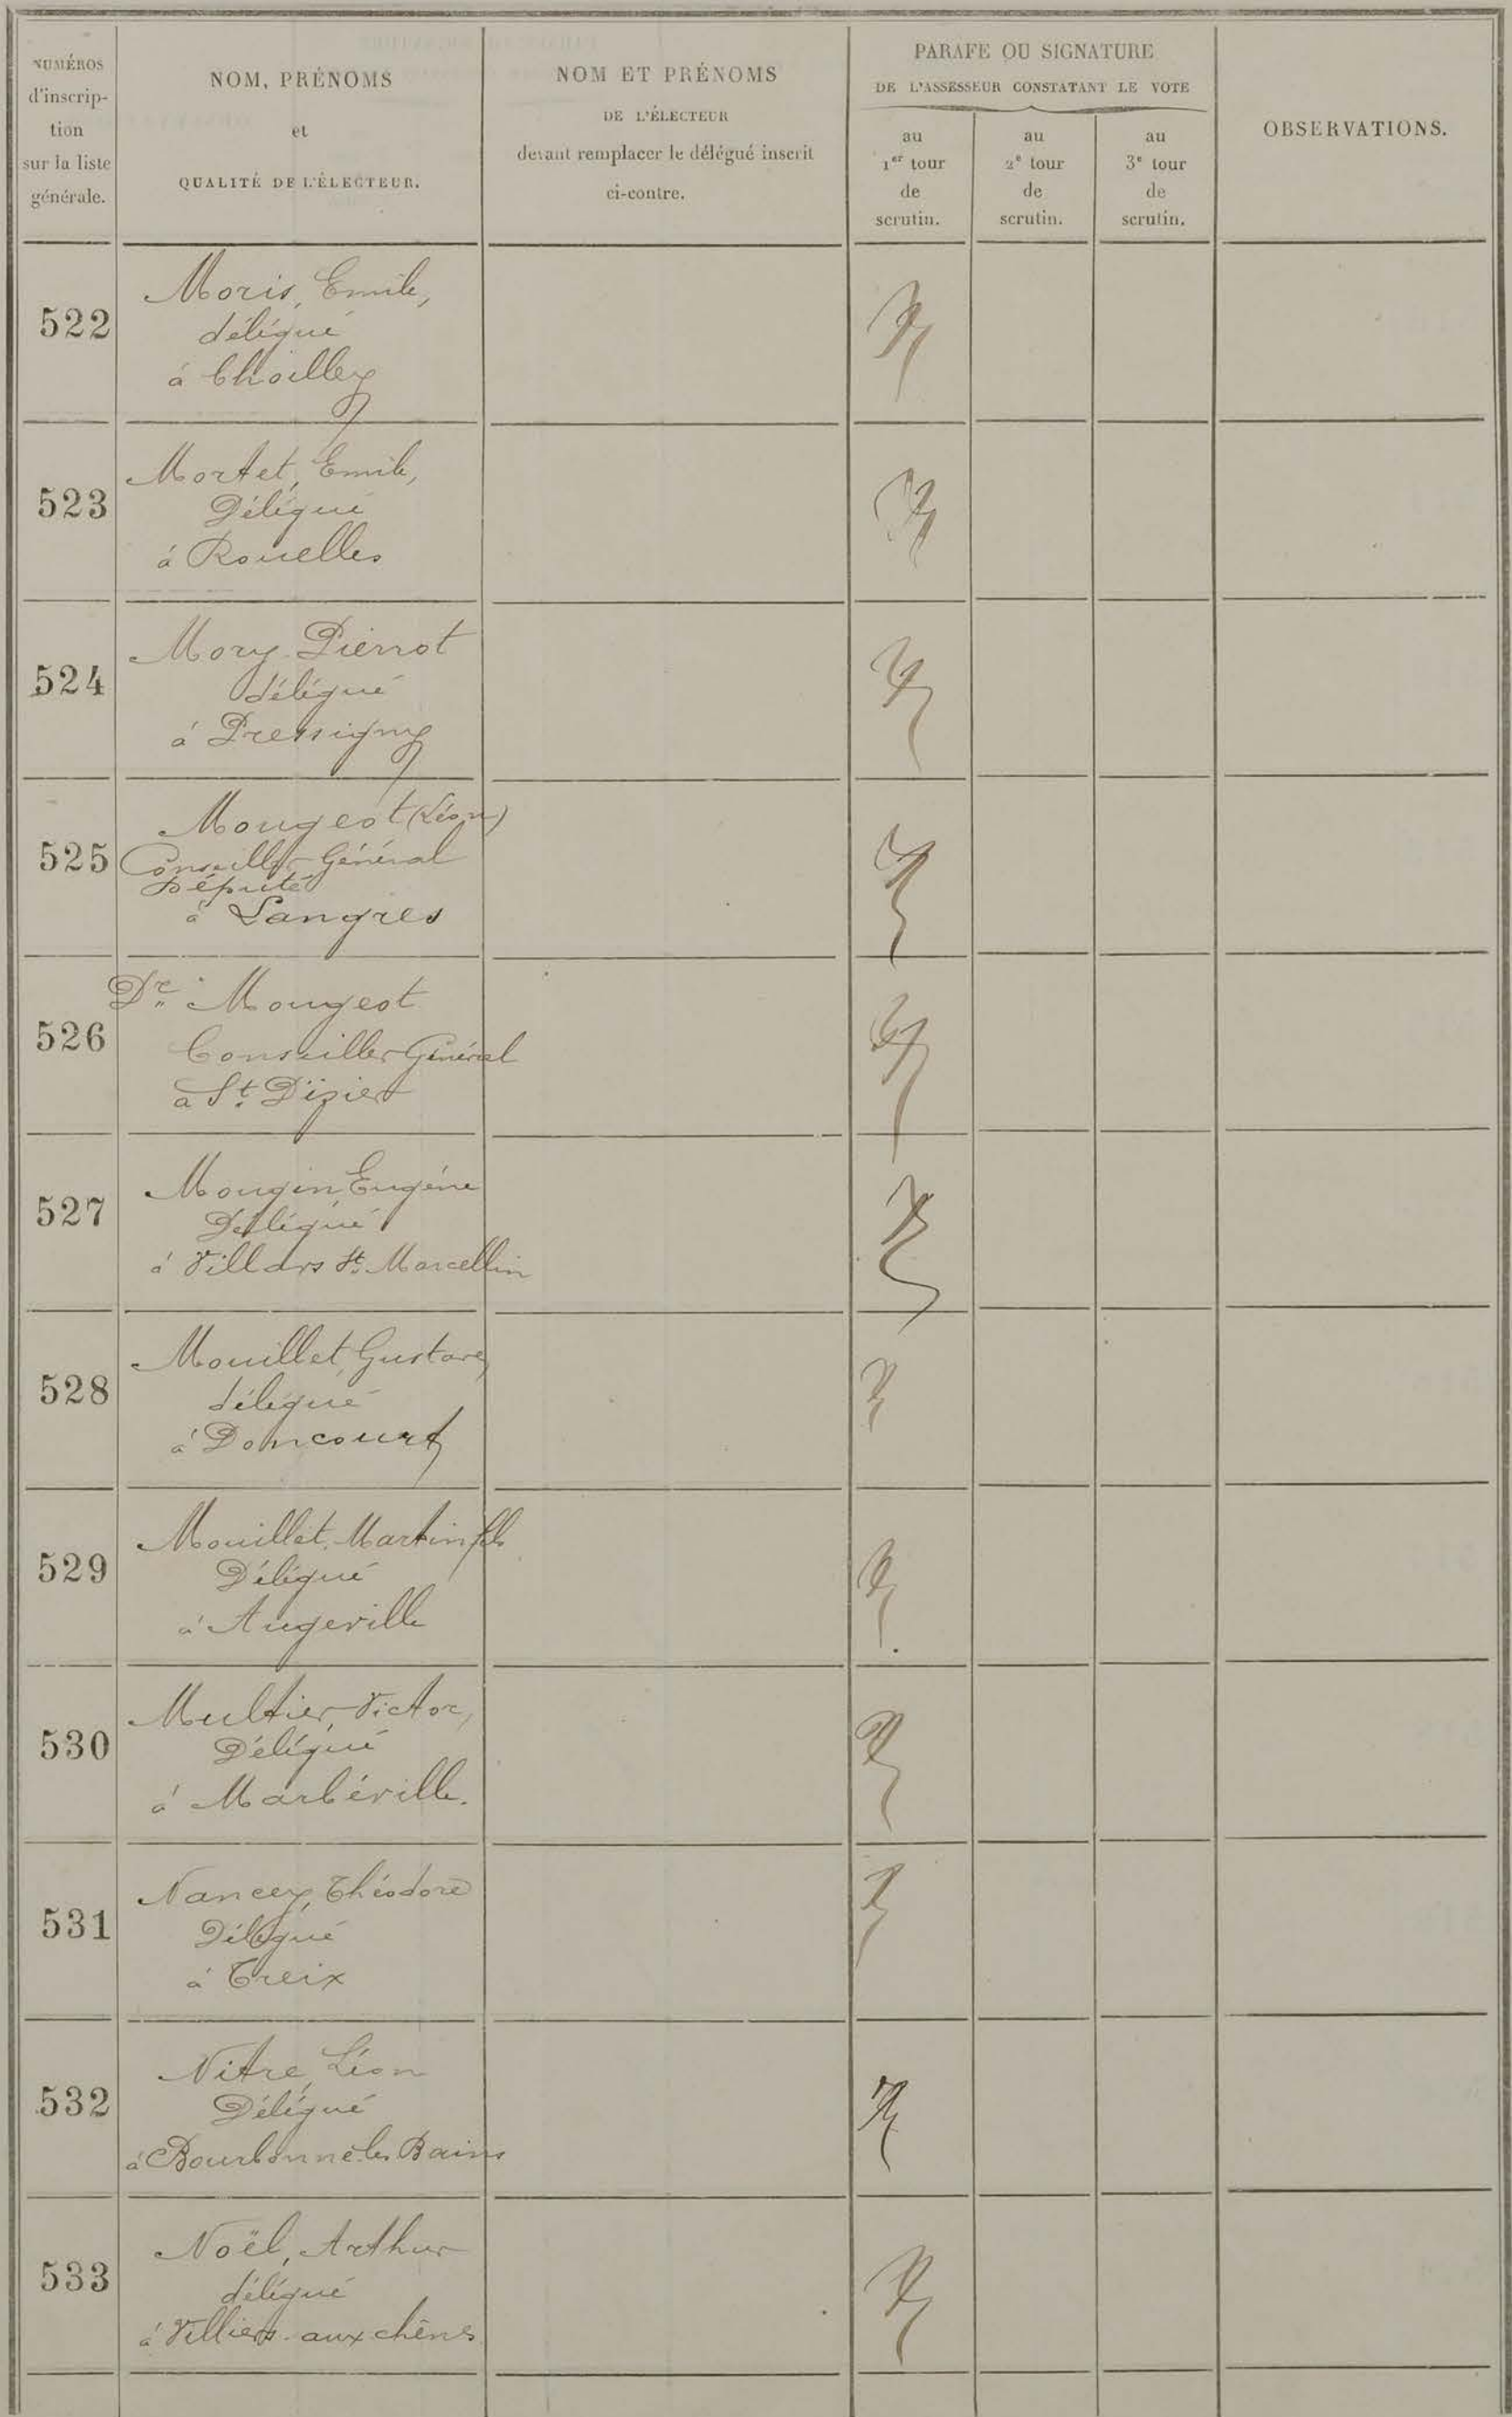 NUMÉROS
d'inscrip-
tion
sur la liste
générale.
NOM, PRÉNOMS
et
QUALITÉ DE L'ÉLECTEUR.
NOM ET PRÉNOMS
DE L'ÉLECTEUR
devant remplacer le délégué inscrit
ci-contre.
PARAFE OU SIGNATURE
DE L'ASSESSEUR CONSTATANT LE VOTE
au
1er tour
de
scrutin.
au
2e tour
de
scrutin.
au
3e tour
de
scrutin.
OBSERVATIONS.
522
Moris, Emile,
délégué
à Choilley
523
Mortet, Emile,
Délégué
à Rouelles
524
Mory-Pierrot
délégué
à Pressigny
525
Mougeot (Léon)
Conseiller Général
Député
à Langres
526
Dr. Mougeot
Conseiller Général
à St. Dizier
527
Mougin, Eugène
Délégué
à Villars St. Marcellin
528
Mouillet, Gustave,
délégué
à Doncourt
529
Mouillet, Martin fils
Délégué
à Augeville
530
Multier, Victor,
Délégué
à Marbéville.
531
Nancey, Théodore
Délégué
à Treix
532
Nitre, Léon
Délégué
à Bourbonne les Bains
533
Noël, Arthur
délégué
à Villiers-aux chênes